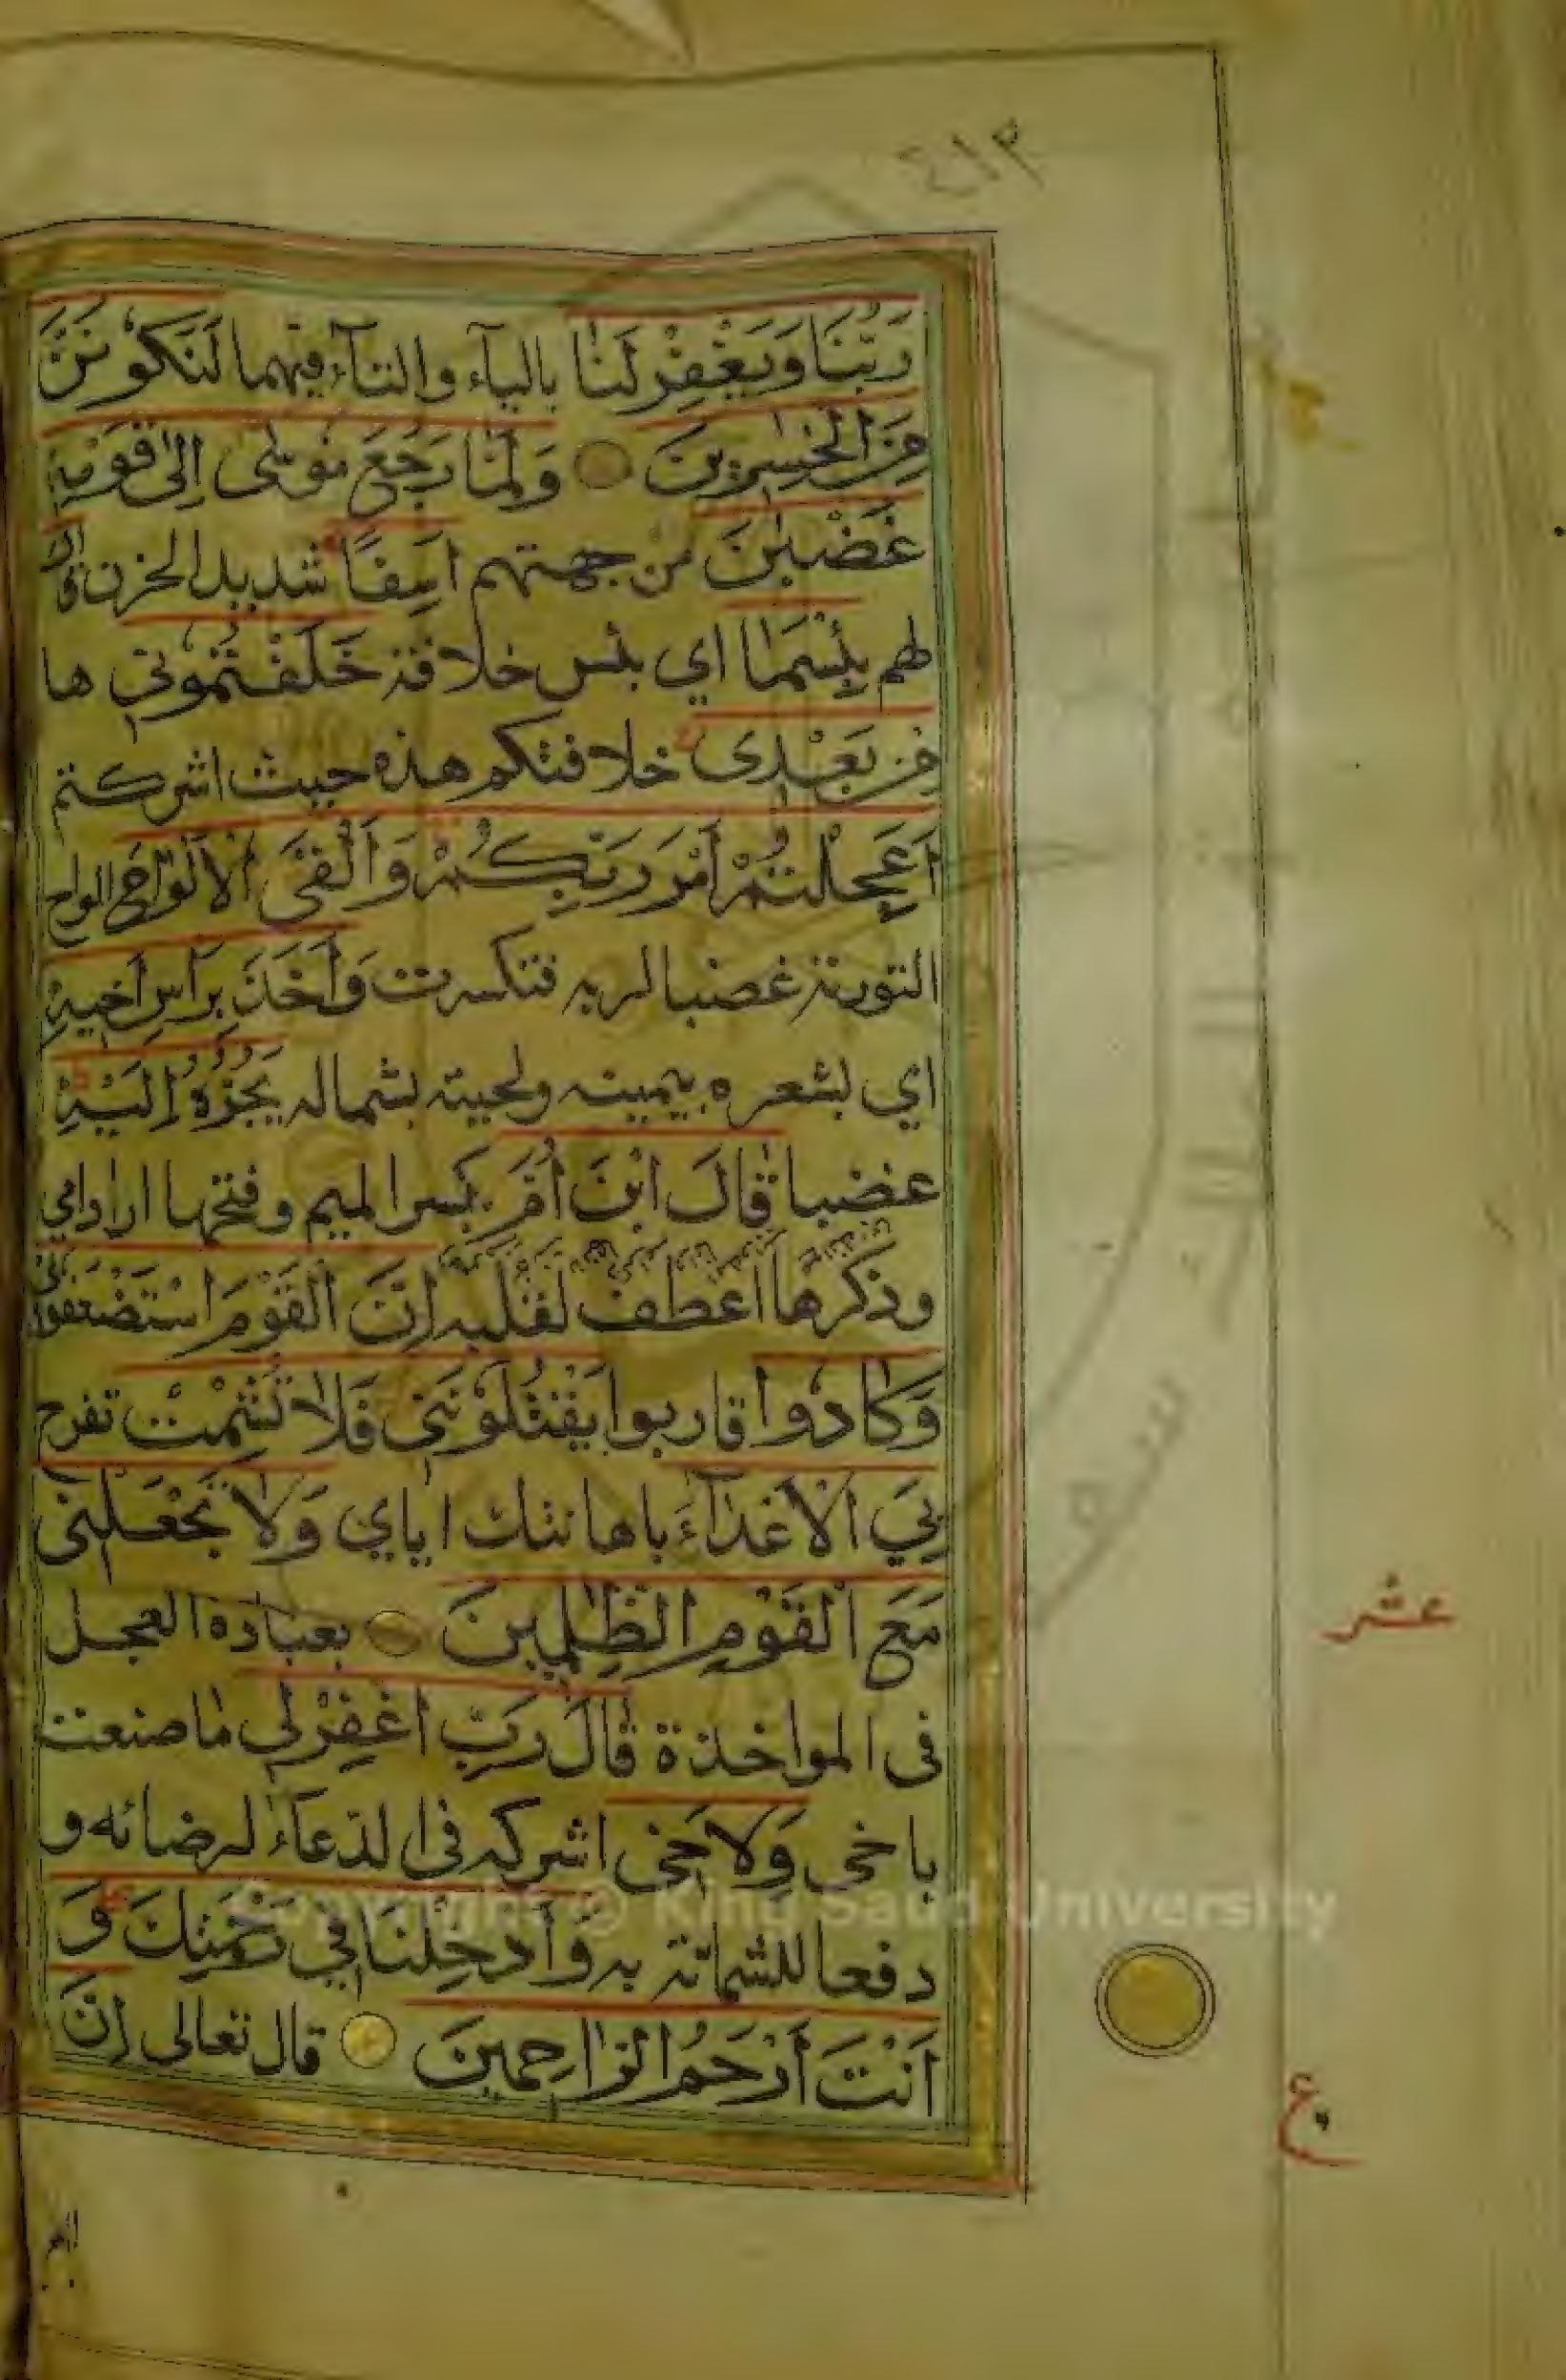 ٤١٣
رَبُّنَا وَيَغْفِرْ لَنَا بالياء والتاء فيهما لَنَكُونَنَّ
مِنَ الْخٰسِرِينَ وَلَمَّا رَجَعَ مُوسٰى إِلٰى قَوْمِهِ
غَضْبٰنَ من جهتهم اَسِفًا شديد الحزن قال
لهم بِئْسَمَا اي بئس خلافة خَلَفْتُمُونِي ها
مِنْ بَعْدِى خلافتكم هذه حيث اشركتم
أَعَجِلْتُمْ أَمْرَ رَبِّكُمْ وَأَلْقَى الْأَلْوَاحَ الواح
التورية غضبا لربه فتكسرت وَأَخَذَ بِرَأْسِ أَخِيهِ
اي بشعره بيمينه ولحيته بشماله يَجُرُّهُ إِلَيْهِ
غضبا قَالَ ابْنَ أُمَّ بكسر الميم وفتحها اراد امي
وذكرها اعطف لقلبه إِنَّ الْقَوْمَ اسْتَضْعَفُونِي
وَكَادُوا قاربوا يَقْتُلُونَنِي فَلَا تُشْمِتْ تفرح
بِيَ الْأَعْدَاءَ باهانتك اياي وَلَا تَجْعَلْنِى
مَعَ الْقَوْمِ الظّٰلِمِينَ بعبادة العجل
عشر
فى المواخذة قَالَ رَبِّ اغْفِرْ لِي ما صنعت
باخى وَلِأَخِى اشركه فى الدعاء لرضائه و
دفعا للشماتة به وَأَدْخِلْنَا فِي رَحْمَتِكَ وَ
Copyright © King Saud University
أَنْتَ أَرْحَمُ الرَّاحِمِينَ قال تعالى إِنَّ
ع